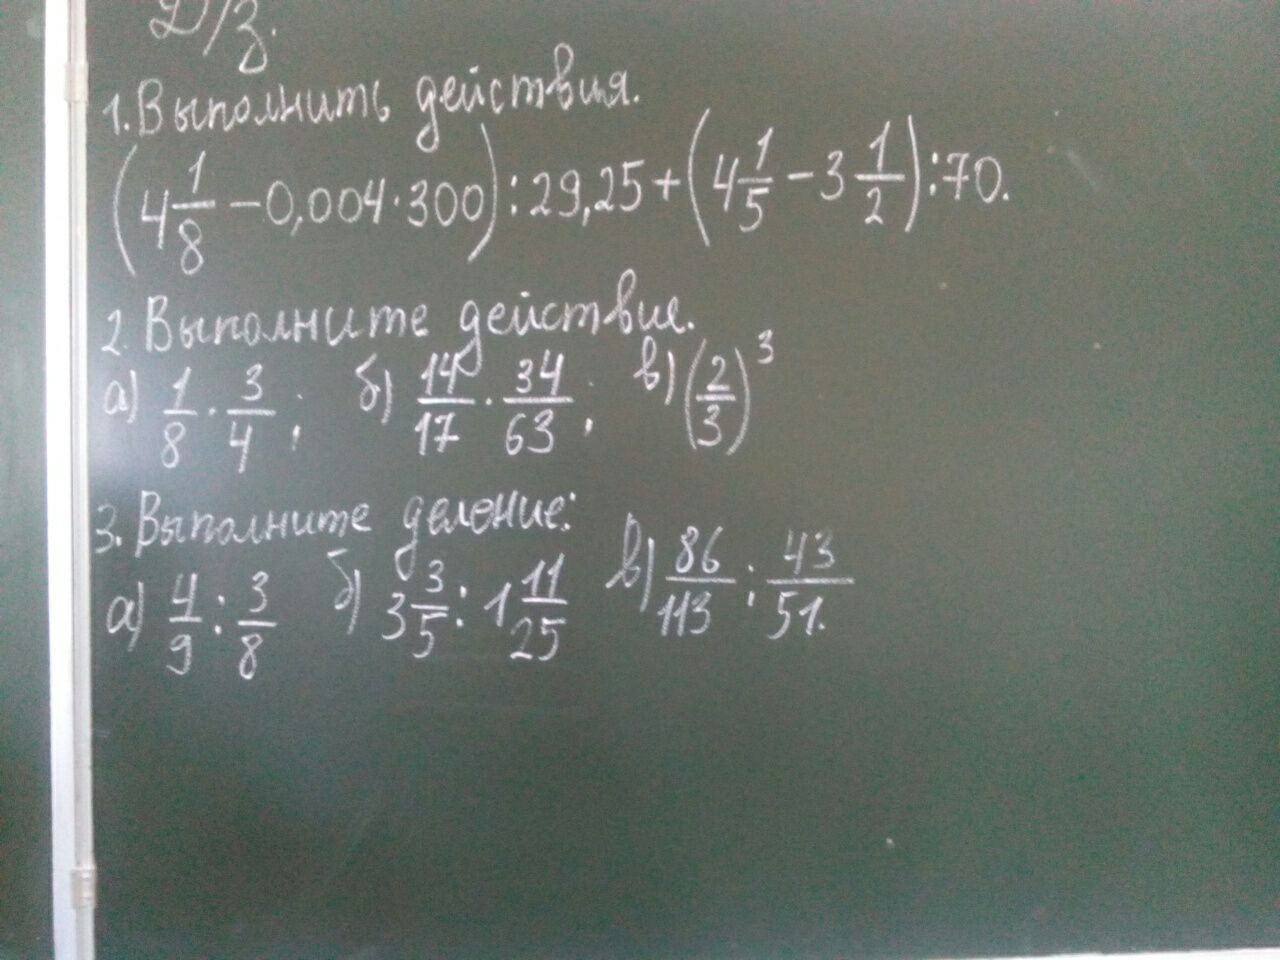 Д/з.
1. Выполнить действия.
(4 1/8 - 0,004 · 300) : 29,25 + (4 1/5 - 3 1/2) : 70.
2. Выполните действие.
а) 1/8 · 3/4 ; б) 14/17 · 34/63 ; в) (2/3)³
3. Выполните деление:
а) 4/9 : 3/8 б) 3 3/5 : 1 11/25 в) 86/113 : 43/51.